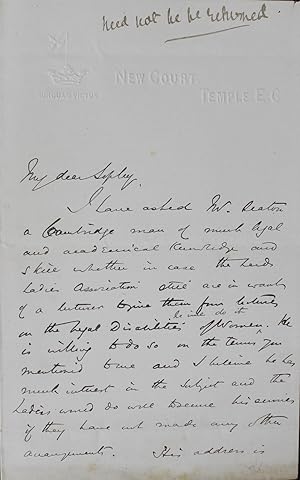 Need not be returned
NEW COURT.
TEMPLE. E.C
My dear
I have asked Mr.
a Cambridge man of much legal
and academical knowledge and
skill whether in case the Leeds
Ladies Association still are in want
of a lecturer to give them four lectures
he will do it
on the Legal Disabilities of Women. He
is willing to do so on the terms you
mentioned to me and I believe he has
much interest in the subject and the
Ladies would do well to secure his services
if they have not made any other
arrangements. His address is